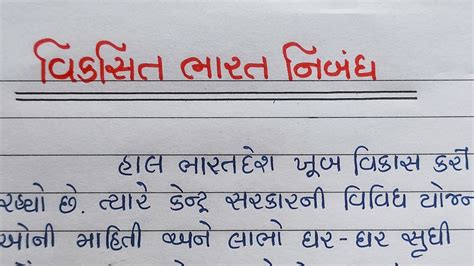 વિકસિત ભારત નિબંધ
હાલ ભારતદેશ ખૂબ વિકાસ કરી
રહ્યો છે. ત્યારે કેન્દ્ર સરકારની વિવિધ યોજના
ઓની માહિતી અને લાભો ઘર-ઘર સુધી